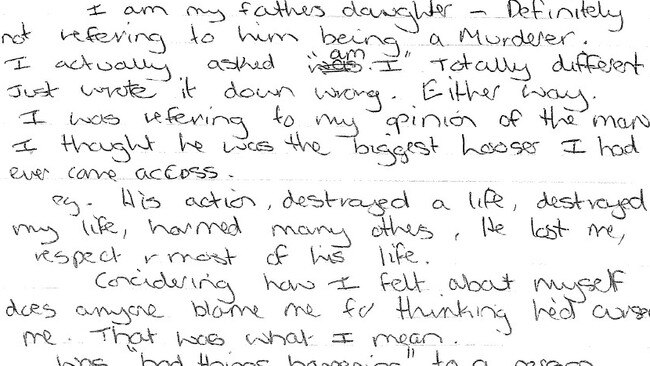 I am my fathes daughter - Definitely
not refering to him being a Murderer.
I actually asked "am I" Totally different
Just wrote it down wrong. Either way.
I was refering to my opinion of the man
I thought he was the biggest looser I had
ever came accoss.
eg. His action, destrayed a life, destrayed
my life, harmed many othes, He lost me,
respect r most of his life.
Concidering how I felt about myself
does anyone blame me for thinking he'd curse
me. That was what I mean.
"bad things happening" to a person